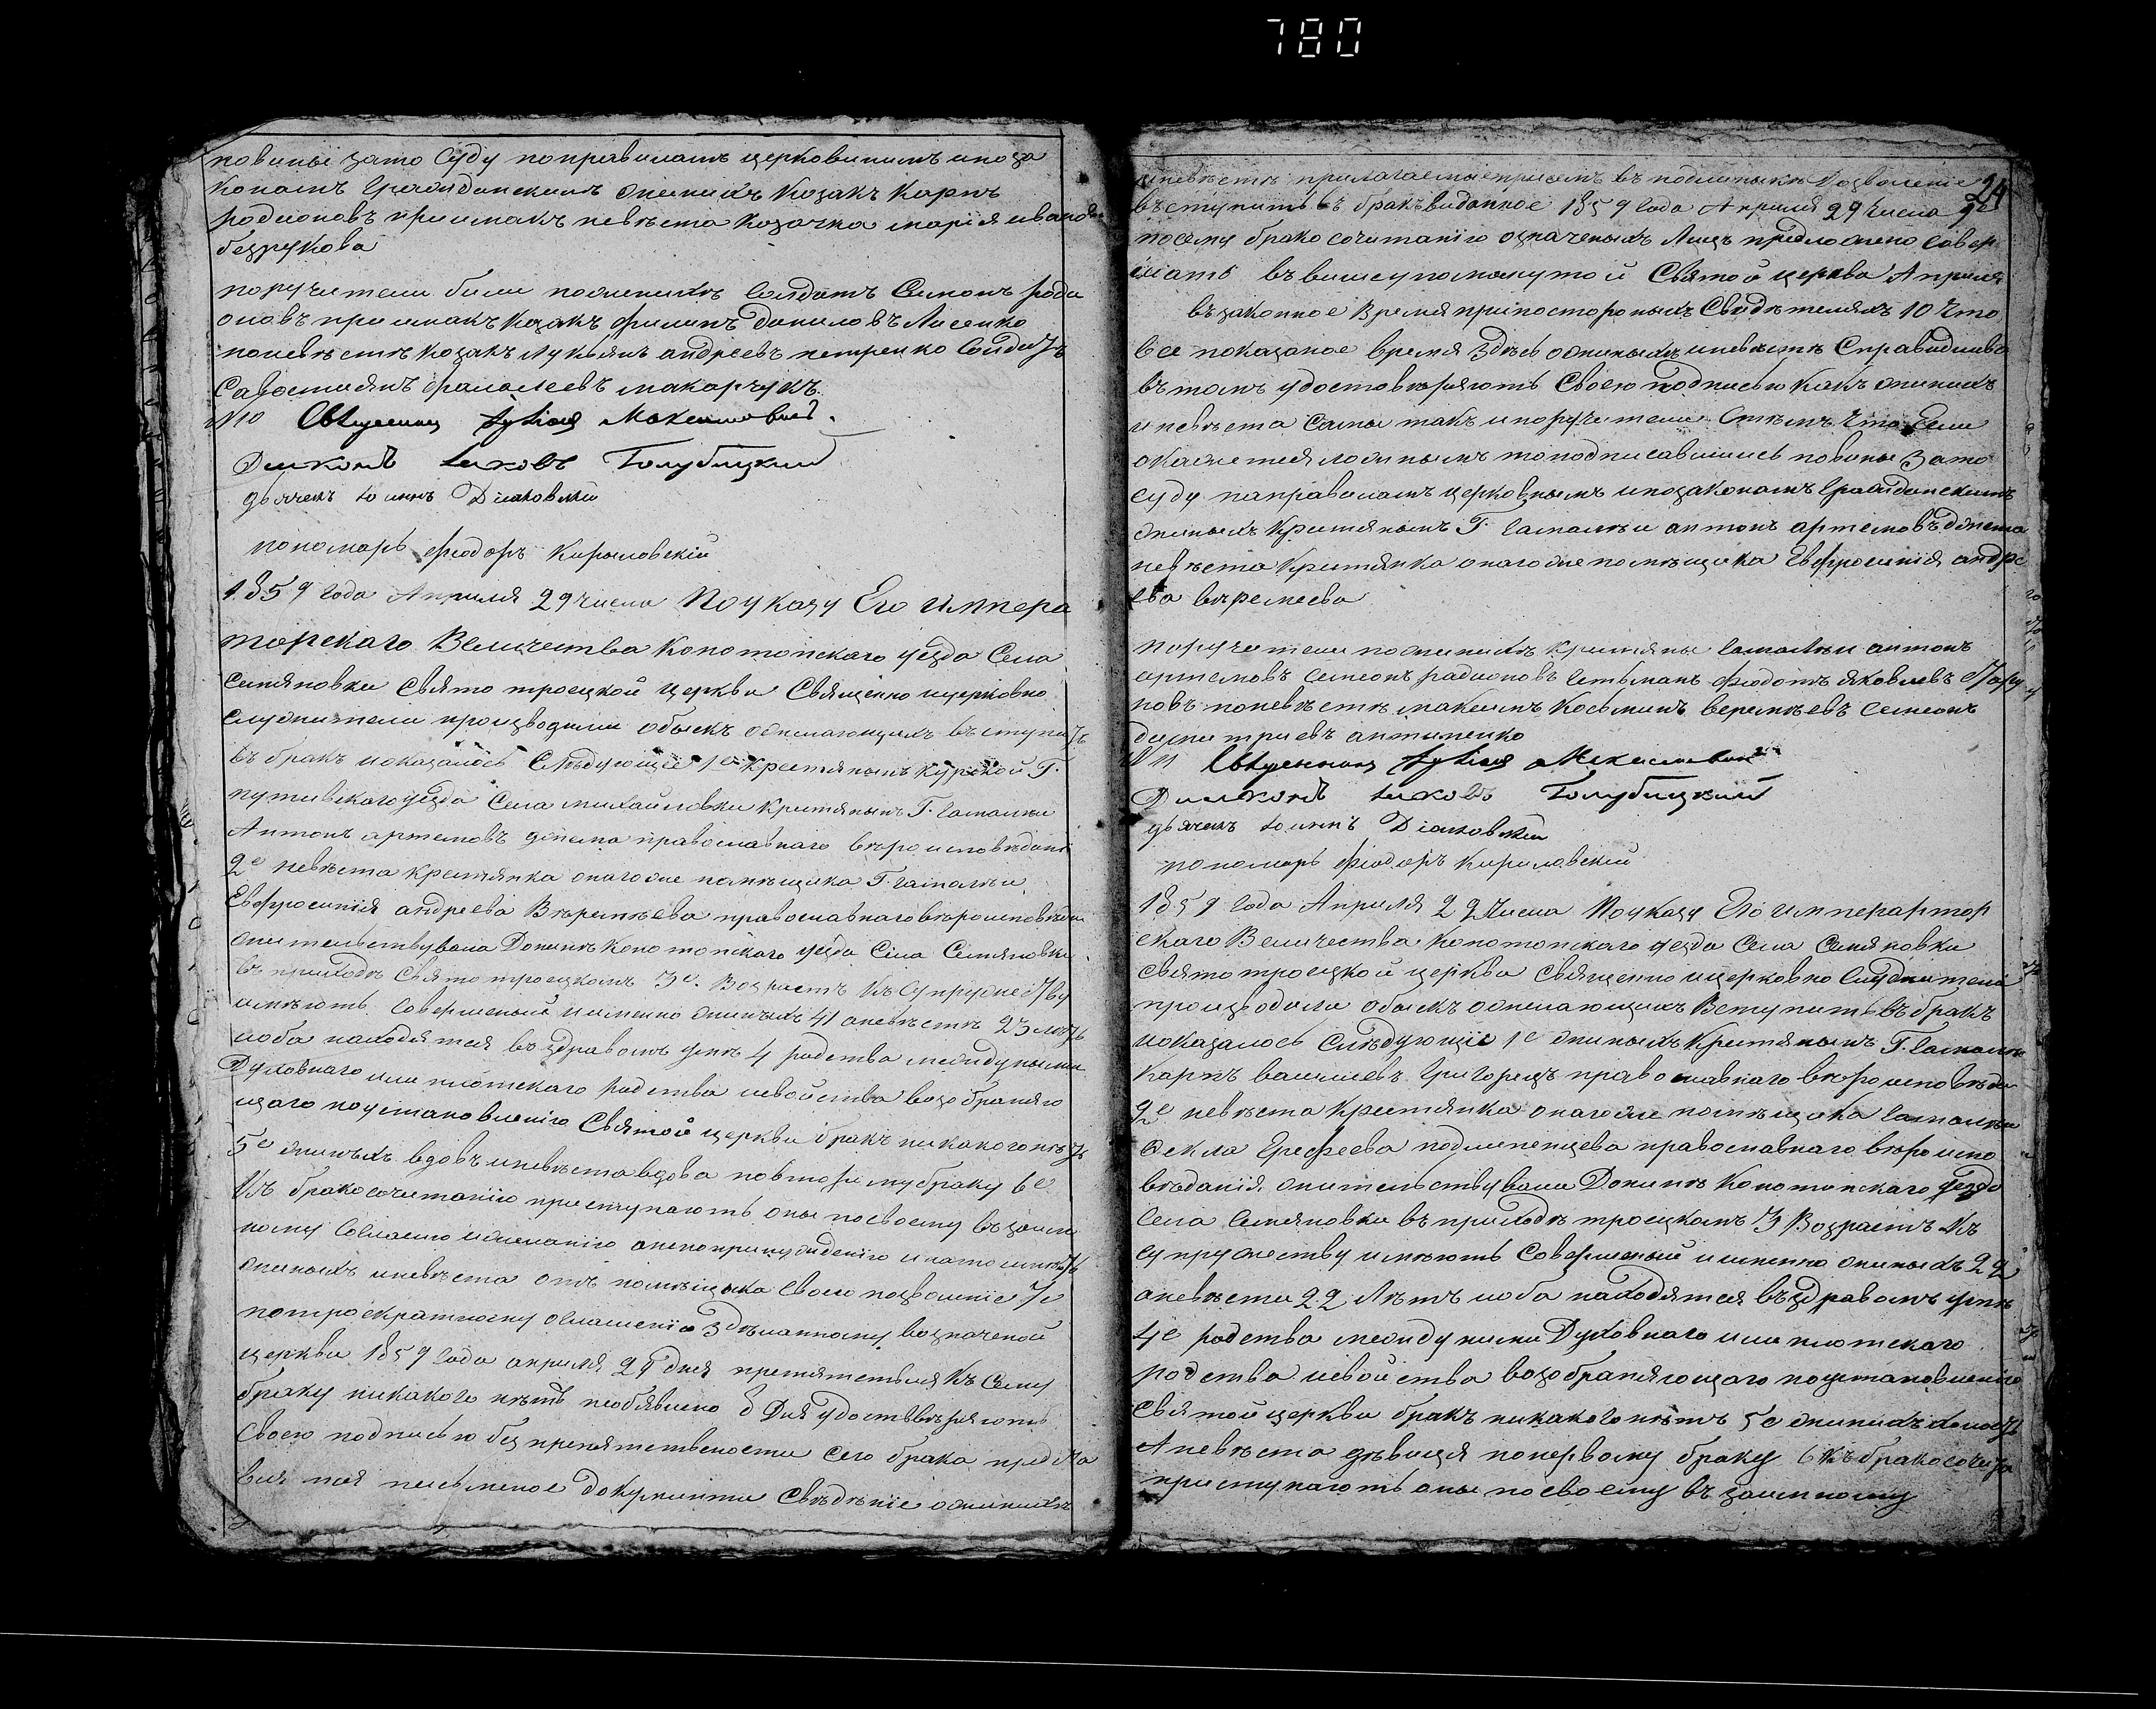 780
повины зато Суду поправиламъ церковнимъ ипоза
конамъ Гражданскимъ жених Козакъ Карпъ
родионовъ приимакъ невѣста козачка марія иванова
безрукова
поручители били поженихѣ Солдатъ Симонъ роди
оновъ приимакъ Козакъ филипъ даниловъ Лисенко
поневѣстѣ козакъ Лукьянъ андреевъ петренко Солдатъ
Савостиянъ макарчукъ
№10 Священник Максимович
Диаконъ Иаковъ Голубицкий
дьячекъ Іоаннъ Діаковский
пономарь феодоръ Кириловскій
1859 года Апреля 29 числа По указу Его Импера
торскаго Величества Конотопскаго уезда Села
Семяновки Свято троецкой Церкви Священно ицерковно
служители производили обыскъ ожелающихъ вступить
въ бракъ ноказалось Слѣдующее 1е крестянинъ курской Г.
путивскаго уезда Села михайловки крестянинъ Г.
Антонъ артемовъ православнаго вѣроисповѣдані
2е невѣста крестянка оногоже помѣщика Г.
Евфросинія андреева Вѣремѣева православнаго вѣроисповѣдан
жительствувала Донинѣ Конотопскаго уезда Села Семяновки
въ приходѣ Святотроецкомъ 3е. Возрастъ Къ Супружеству
имѣютъ Совершеный иименно женихъ 41 аневѣстѣ 23 лѣтъ
иоба находятся въздравомъ умѣ 4 родства междуними
Духовнаго или плотскаго родства исвойства возбраняю
щаго поустановленію Святой церкви бракъ никакого нѣтъ
5е женихъ вдовъ иневѣста вдова повторому браку 6е
Къ бракосочитанію приступаютъ оны посвоему взаим
ному Согласию ижеланію анепопринуждению инато имѣютъ
женихъ иневѣста отъ помѣщика Своего позволеніе 7е
потроекратному оглашению Здѣланному возначеной
церкви 1859 года апреля 29 дня препятствия Къ Сему
браку никакого нѣтъ необявлено 8 Для удостовѣряютъ
Своею подписью безпрепятствености Сего брака предста
вляются писменое документи Свѣдѣніе оженихѣ
24
иневѣстѣ прилагаемые присемъ въ подлинныкѣ Позволение
въступить въ бракъ виданное 1859 года Апреля 29 числа 9е
посему бракосочитанію означеныхъ Лицъ предположено совер
шать въвишеупомянутой Святой церкви Апреля
въ законное Время припосторонихъ Свидѣтеляхъ 10 Что
все показаное время Здѣсь оженихѣ иневѣстѣ Справидливо
въ томъ удостовѣряютъ Своею подписью Какъ женихъ
иневѣста Сами такъ ипоручители Стѣмъ Что Если
окажется ложнымъ топодписавшиись повины Зато
суду направиламъ церковнымъ ипозаконамъ Гражданскимъ
женихъ Крестянинъ Г. антонъ артемовъ
невѣста Крестянка оногоже помѣщика Евфросинія андре
ева вѣремеева
Поручители поженихѣ крестяны антонъ
артемовъ Семеонъ радионовъ Гетьман феодотъ яковлевъ
новъ поневѣстѣ максимъ Косьминъ веремѣевъ Семеонъ
дмитриевъ антипенко
№11 Священник Максимович
Диаконъ Иаковъ Голубицкий
дьячекъ Іоаннъ Діаковский
пономарь феодоръ Кириловскій
1859 года Апреля 29 Числа По указу Его императтор
скаго Величества Конотопскаго уезда Села Семяновки
святотроецкой церкви Священно ицерковно Служители
производили обыскъ ожелающихъ Вступить въ бракъ
ноказалось Слѣдующее 1е женихъ Крестянинъ Г.
Карпъ василиевъ Григорецъ православнаго вѣроисповѣдан
2е невѣста Крестянка оногоже помѣщика
Фекла Ерефеева православнаго вѣроиспо
вѣданія жительствували Донинѣ Конотопскаго уезда
Села Семяновки въ приходѣ троецкомъ 3 Возрастъ Къ
супружеству имѣютъ Совершеный иименно женихъ 22
аневѣсти 22 Лѣтъ иоба находятся въздравомъ умѣ
4е родства между ними Духовнаго или плотскаго
родства исвойства возбраняющаго поустановлению
Святой церкви бракъ никакого нѣтъ 5е женихъ холостъ
Аневѣста дѣвица попервому браку 6 Къ бракосочита
приступаютъ оны посвоему въ заимному